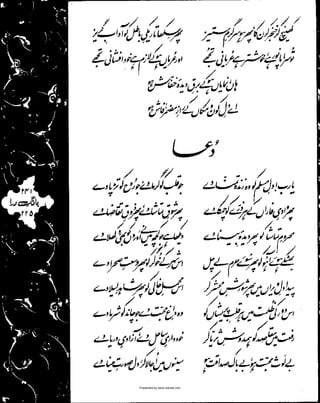 کھینچ کر خنجر کرن کا پھر ہو سرگرمِ ستیز پھر سکھا تاریکیِ باطل کو آدابِ گریز
تو سراپا نور ہے خوشتر ہے عریانی تجھے اور عریاں ہو کے لازم ہے خود افشانی تجھے
ہاں نمایاں ہو کے برقِ دیدۂ خفاش ہو
اے دلِ کون و مکاں کے رازِ مضمر فاش ہو
دُعا
یارب دلِ مسلم کو وہ زندہ تمنا دے جو قلب کو گرما دے جو روح کو تڑپا دے
پھر وادیِ فاراں کے ہر ذرّے کو چمکا دے پھر شوقِ تماشا دے پھر ذوقِ تقاضا دے
محرومِ تماشا کو پھر دیدۂ بینا دے دیکھا ہے جو کچھ میں نے اوروں کو بھی دکھلا دے
بھٹکے ہوئے آہو کو پھر سوئے حرم لے چل اس شہر کے خوگر کو پھر وسعتِ صحرا دے
پیدا دلِ ویراں میں پھر شورشِ محشر کر اس محملِ خالی کو پھر شاہدِ لیلا دے
اس دور کی ظلمت میں ہر قلبِ پریشاں کو وہ داغِ محبت دے جو چاند کو شرما دے
رفعت میں مقاصد کو ہمدوشِ ثریا کر خودداریِ ساحل دے آزادیِ دریا دے
بے لوث محبت ہو بے باک صداقت ہو سینوں میں اجالا کر دل صورتِ مینا دے
۲۴۱
بانگِ درا
۲۲۵
Presented by www.ziaraat.com